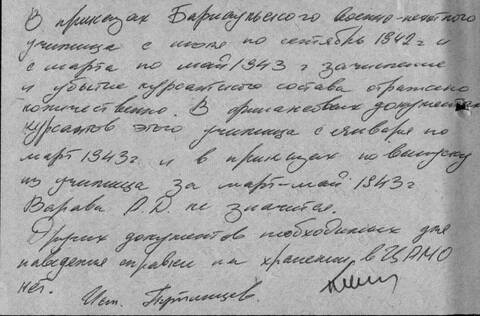 В приказах Барнаульского военно-пехотного
училища с июня по сентябрь 1942 г и
с марта по май 1943 г зачисление
и убытие курсантского состава отражено
количественно. В финансовых документах
курсантов этого училища с января по
март 1943 г. и в приказах по выпуску
из училища за март-май 1943 г
Варава А.Д. не значится.
Других документов необходимых для
наведения справки на хранении в ЦАМО
нет.
Исп.